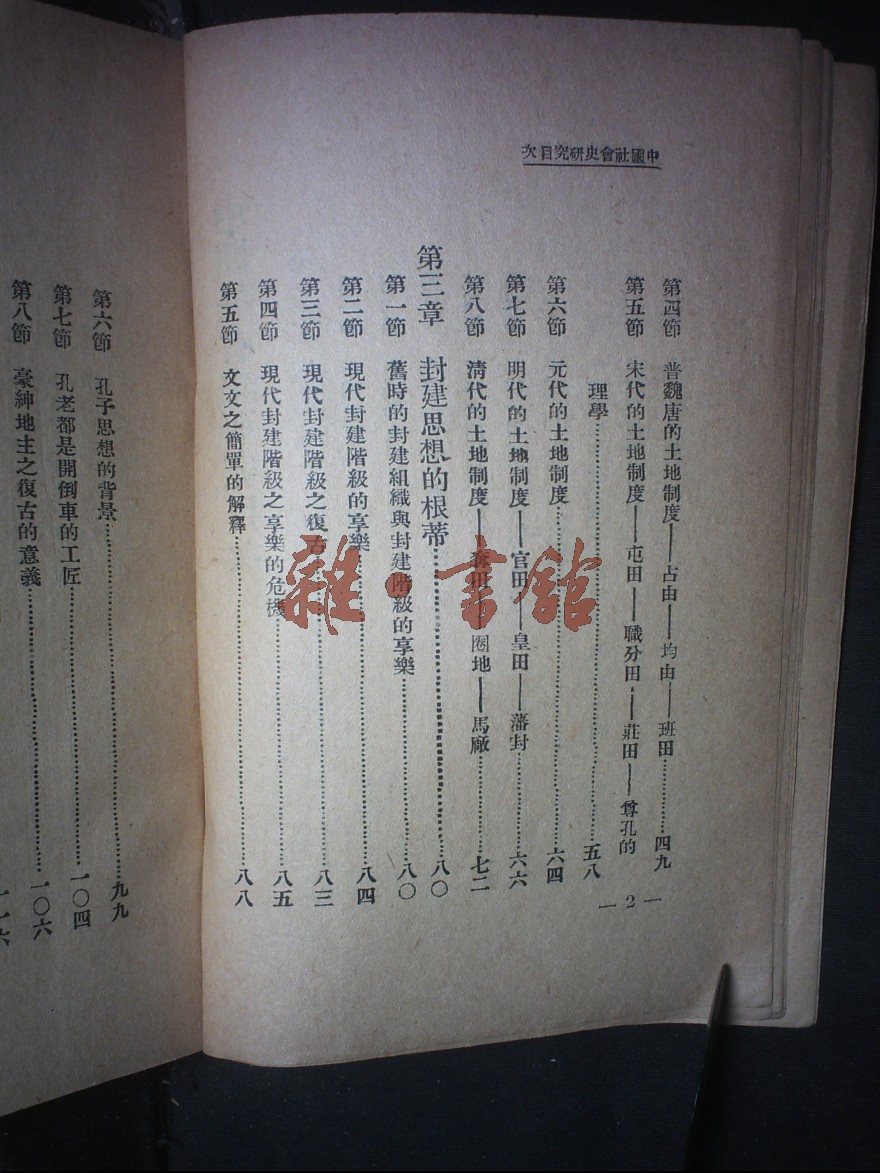 中國社會史研究目次
第四節 晉魏唐的土地制度——占由——均由——班田…………四九
第五節 宋代的土地制度——屯田——職分田——莊田——尊孔的
理學…………五八
第六節 元代的土地制度…………六四
第七節 明代的土地制度——官田——皇田——藩封…………六六
第八節 清代的土地制度——圈地——馬廠…………七二
第三章 封建思想的根蒂…………八〇
第一節 舊時的封建組織與封建階級的享樂…………八〇
第二節 現代封建階級的享樂…………八四
第三節 現代封建階級之復古…………八三
第四節 現代封建階級之享樂的危機…………八五
第五節 文文之簡單的解釋…………八八
— 2 —
第六節 孔子思想的背景…………九九
第七節 孔老都是開倒車的工匠…………一〇四
第八節 豪紳地主之復古的意義…………一〇六
一一六
雜·書館